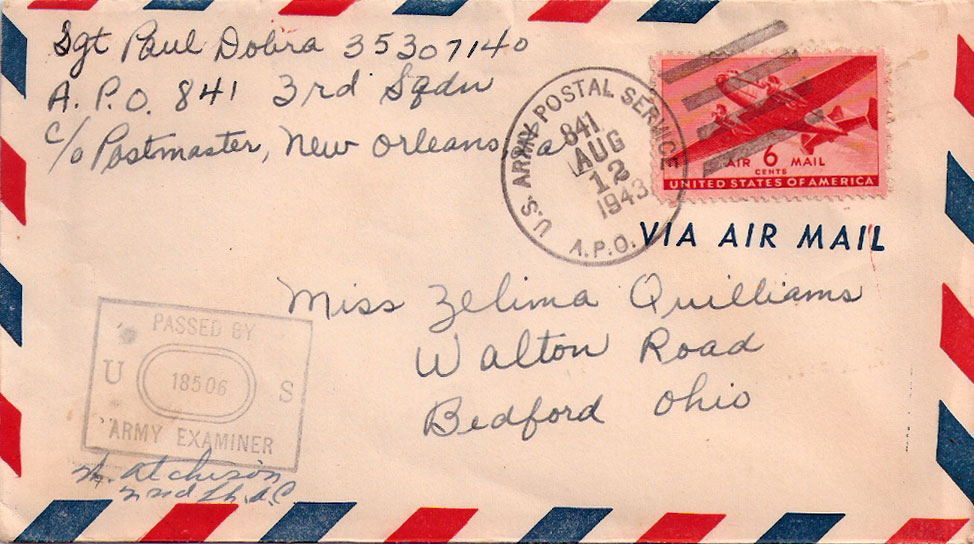 Sgt Paul Dobra 35307140
A.P.O. 841 3rd Sqdn
c/o Postmaster, New Orleans, La
U.S. ARMY POSTAL SERVICE
841
AUG
12
1943
A.P.O.
AIR 6 MAIL
CENTS
UNITED STATES OF AMERICA
VIA AIR MAIL
Miss Zelima Quilliams
Walton Road
Bedford Ohio
PASSED BY
U 18506 S
ARMY EXAMINER
Atchison
2nd Lt. A.C.